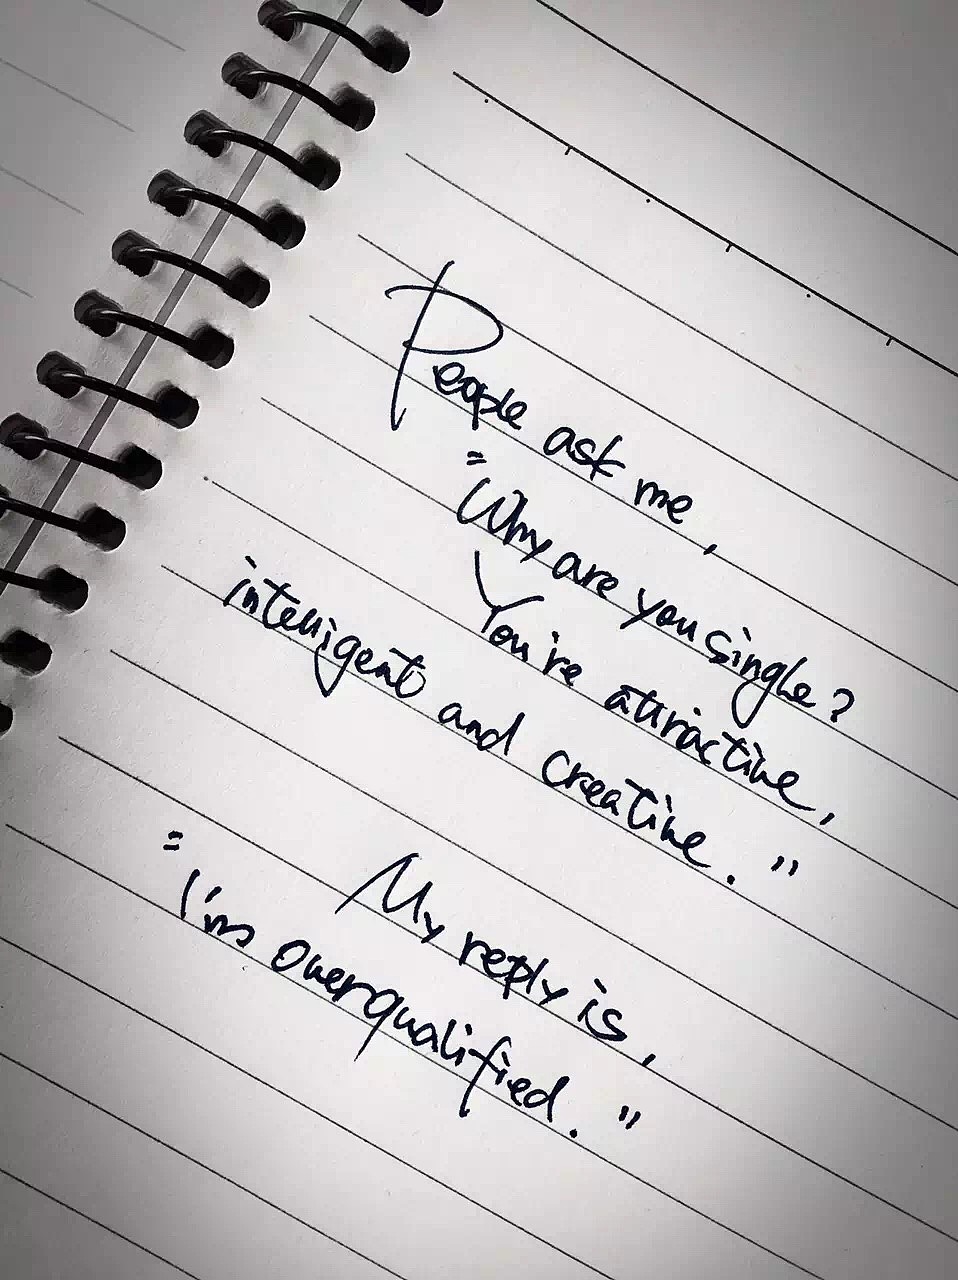 People ask me,
"Why are you single?
You're attractive,
intelligent and creative."
My reply is,
"I'm overqualified."